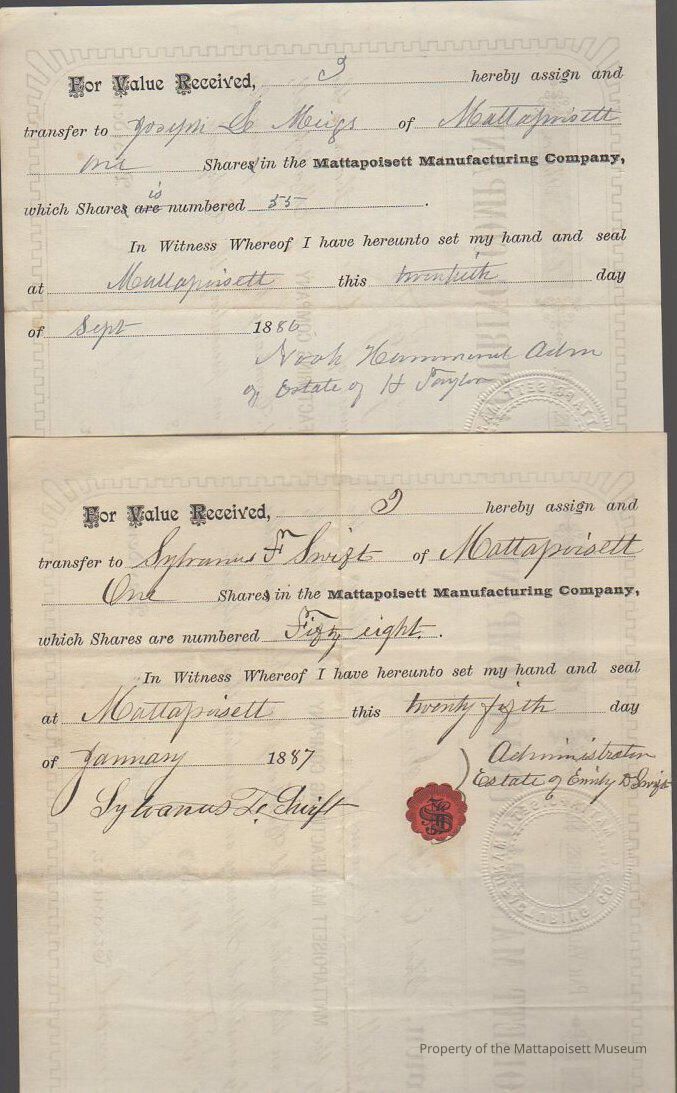 For Value Received, I hereby assign and
transfer to Joseph L Meigs of Mattapoisett
One Shares in the Mattapoisett Manufacturing Company,
is
which Shares are numbered 55 .
In Witness Whereof I have hereunto set my hand and seal
at Mattapoisett this twentieth day
of Sept 1886
Noah Hammond Adm
of Estate of H Taylor
For Value Received, I hereby assign and
transfer to Sylvanus F Swift of Mattapoisett
One Shares in the Mattapoisett Manufacturing Company,
which Shares are numbered Fifty eight .
In Witness Whereof I have hereunto set my hand and seal
at Mattapoisett this twenty fifth day
of January 1887
Administrator
Estate of Emily D Swift
Sylvanus F. Swift
Property of the Mattapoisett Museum